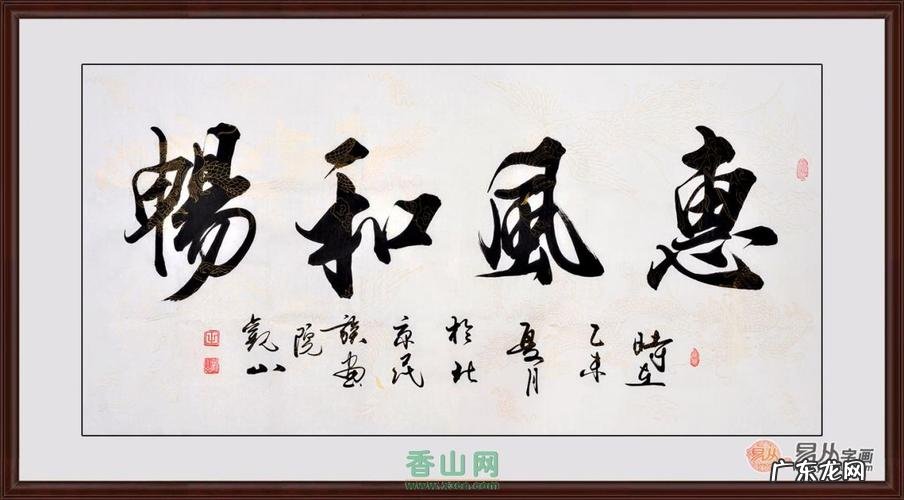 惠風和暢
時在
乙未
夏月
於北
京民
族畫
院
觀山
香山网
易从字画
广东龙网